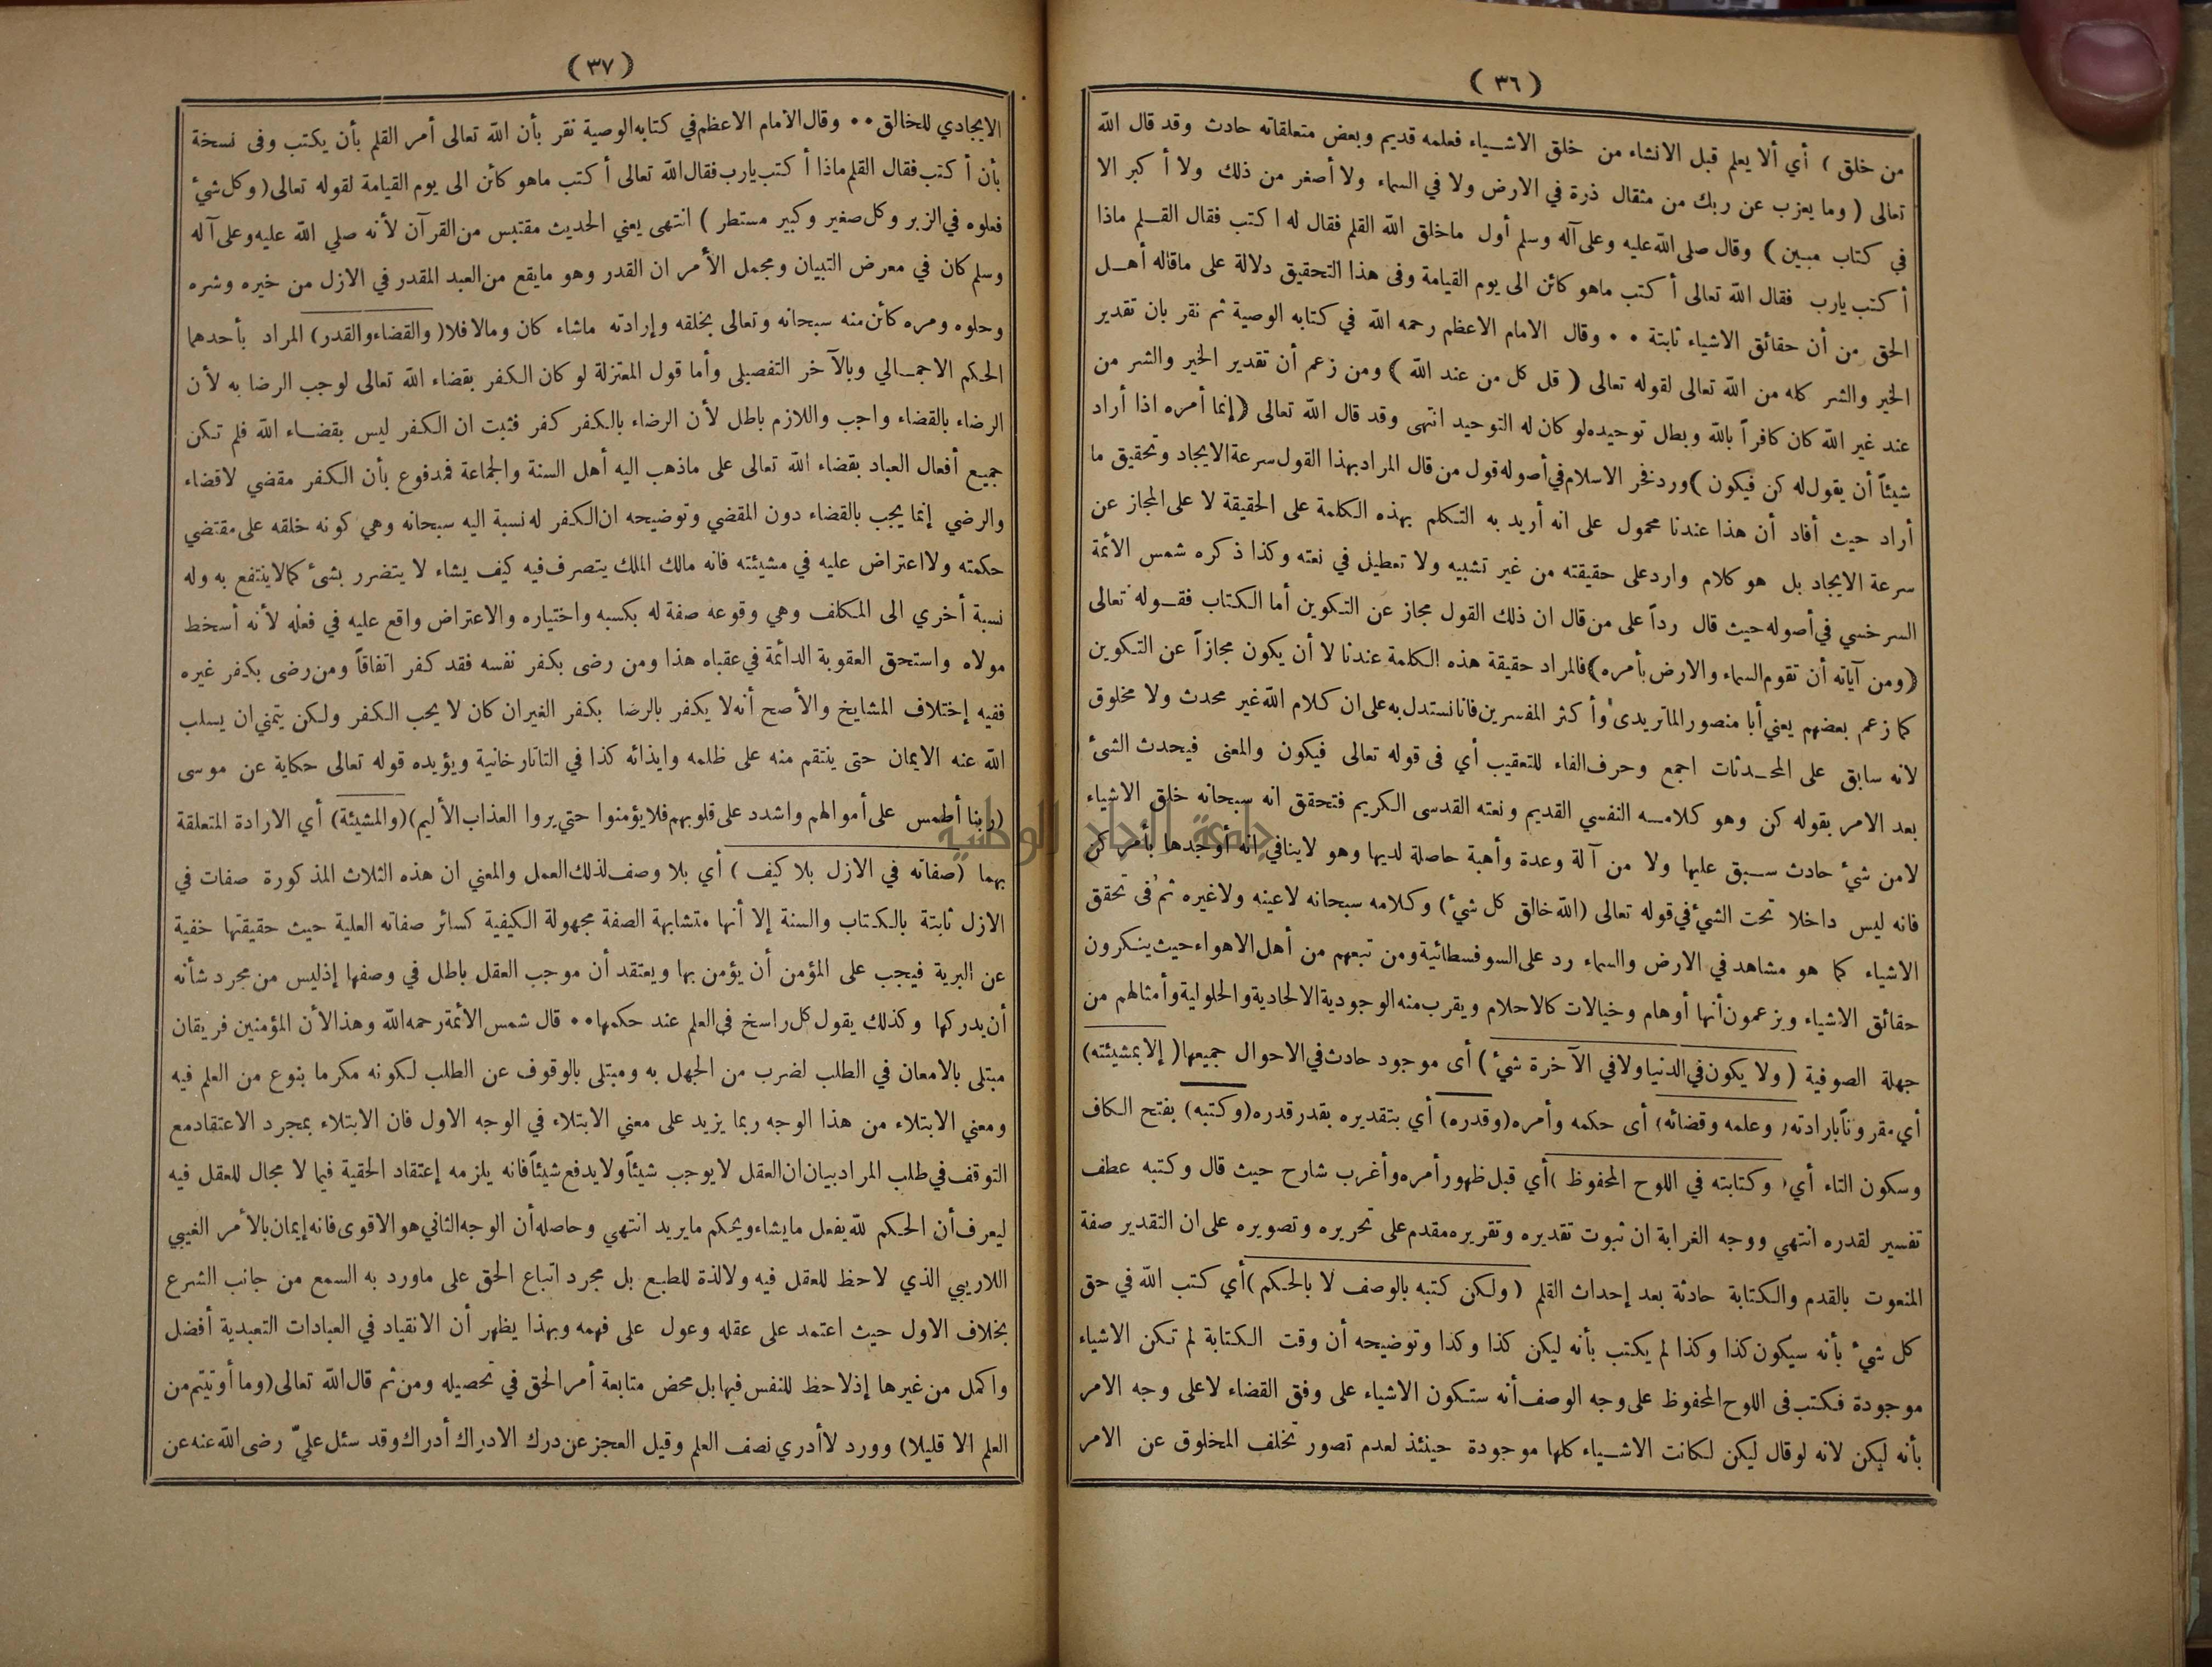 ( ٣٦ )
من خلق ) أي ألا يعلم قبل الانشاء من خلق الاشـياء فعلمه قديم وبعض متعلقاته حادث وقد قال الله
تعالى ( وما يعزب عن ربك من مثقال ذرة في الارض ولا في السماء ولا أصغر من ذلك ولا أكبر الا
في كتاب مبين ) وقال صلى الله عليه وعلى آله وسلم أول ماخلق الله القلم فقال له اكتب فقال القـلم ماذا
أكتب يارب فقال الله تعالى أكتب ماهو كائن الى يوم القيامة وفى هذا التحقيق دلالة على ماقاله أهـل
الحق من أن حقائق الاشياء ثابتة ٠٠ وقال الامام الاعظم رحمه الله في كتابه الوصية ثم نقر بان تقدير
الخير والشر كله من الله تعالى لقوله تعالى ( قل كل من عند الله ) ومن زعم أن تقدير الخير والشر من
عند غير الله كان كافراً بالله وبطل توحيده لو كان له التوحيد انتهى وقد قال الله تعالى (إنما أمره اذا أراد
شيئاً أن يقول له كن فيكون )ورد فخر الاسلام في أصوله قول من قال المراد بهذا القول سرعة الايجاد وتحقيق ما
أراد حيث أفاد أن هذا عندنا محمول على انه أريد به التكلم بهذه الكلمة على الحقيقة لا على المجاز عن
سرعة الايجاد بل هو كلام وارد على حقيقته من غير تشبيه ولا تعطيل في نعته وكذا ذكره شمس الأئمة
السرخسي في أصوله حيث قال رداً على من قال ان ذلك القول مجاز عن التكوين أما الكتاب فقـوله تعالى
(ومن آياته أن تقوم السماء والارض بأمره)فالمراد حقيقة هذه الكلمة عندنا لا أن يكون مجازاً عن التكوين
كما زعم بعضهم يعني أبا منصور الماتريدى وأكثر المفسرين فانا نستدل به على ان كلام الله غير محدث ولا مخلوق
لانه سابق على المحـدثات اجمع وحرف الفاء للتعقيب أي فى قوله تعالى فيكون والمعنى فيحدث الشئ
بعد الامر بقوله كن وهو كلامـه النفسي القديم ونعته القدسى الكريم فتحقق انه سبحانه خلق الاشياء
لامن شيء حادث سـبق عليها ولا من آلة وعدة وأهبة حاصلة لديها وهو لاينافي انه أوجدها بأمر كن
فانه ليس داخلا تحت الشيء في قوله تعالى (الله خالق كل شيء) وكلامه سبحانه لاعينه ولاغيره ثم فى تحقق
الاشياء كما هو مشاهد في الارض والسماء رد على السوفسطائية ومن تبعهم من أهل الاهواء حيث ينكرون
حقائق الاشياء ويزعمون أنها أوهام وخيالات كالاحلام ويقرب منه الوجودية الالحادية والحلولية وأمثالهم من
جهلة الصوفية ( ولا يكون في الدنيا ولا في الآخرة شيء ) أى موجود حادث في الاحوال جميعها( إلا بمشيئته)
أي مقروناً بارادته( وعلمه وقضائه) أى حكمه وأمره(وقدره) أي بتقديره بقدر قدره(وكتبه) بفتح الكاف
وسكون التاء أي( وكتابته في اللوح المحفوظ )أي قبل ظهور أمره وأغرب شارح حيث قال وكتبه عطف
تفسير لقدره انتهي ووجه الغرابة ان ثبوت تقديره وتقريره مقدم على تحريره وتصويره على ان التقدير صفة
المنعوت بالقدم والكتابة حادثة بعد إحداث القلم ( ولكن كتبه بالوصف لا بالحكم )أي كتب الله في حق
كل شيء بأنه سيكون كذا وكذا لم يكتب بأنه ليكن كذا وكذا وتوضيحه أن وقت الكتابة لم تكن الاشياء
موجودة فكتب فى اللوح المحفوظ على وجه الوصف أنه ستكون الاشياء على وفق القضاء لاعلى وجه الامر
بأنه ليكن لانه لو قال ليكن لكانت الاشـياء كلها موجودة حينئذ لعدم تصور تخلف المخلوق عن الامر
( ٣٧ )
الايجادي للخالق ٠٠ وقال الأمام الاعظم في كتابه الوصية نقر بأن الله تعالى أمر القلم بأن يكتب وفى نسخة
بأن أكتب فقال القلم ماذا أكتب يارب فقال الله تعالى أكتب ماهو كائن الى يوم القيامة لقوله تعالى(وكل شيء
فعلوه في الزبر وكل صغير وكبير مستطر ) انتهى يعني الحديث مقتبس من القرآن لأنه صلي الله عليه وعلى آله
وسلم كان في معرض التبيان ومجمل الأمر ان القدر وهو مايقع من العبد المقدر في الازل من خيره وشره
وحلوه ومره كائن منه سبحانه وتعالى بخلقه وإرادته ماشاء كان ومالا فلا(والقضاء والقدر) المراد بأحدهما
الحكم الاجمـالي وبالآخر التفصيلى وأما قول المعتزلة لو كان الكفر بقضاء الله تعالى لوجب الرضا به لأن
الرضاء بالقضاء واجب واللازم باطل لأن الرضاء بالكفر كفر فثبت ان الكفر ليس بقضـاء الله فلم تكن
جميع أفعال العباد بقضاء الله تعالى على ماذهب اليه أهل السنة والجماعة فمدفوع بأن الكفر مقضي لاقضاء
والرضي إنما يجب بالقضاء دون المقضي وتوضيحه ان الكفر له نسبة اليه سبحانه وهي كونه خلقه على مقتضي
حكمته ولا اعتراض عليه في مشيئته فانه مالك الملك يتصرف فيه كيف يشاء لا يتضرر بشئ كما لا ينتفع به وله
نسبة أخري الى المكلف وهي وقوعه صفة له بكسبه واختياره والاعتراض واقع عليه في فعله لأنه أسخط
مولاه واستحق العقوبة الدائمة في عقباه هذا ومن رضى بكفر نفسه فقد كفر اتفاقاً ومن رضى بكفر غيره
ففيه إختلاف المشايخ والأصح أنه لا يكفر بالرضا بكفر الغير ان كان لا يحب الكفر ولكن يتمني ان يسلب
الله عنه الايمان حتى ينتقم منه على ظلمه وايذائه كذا في التاتارخانية ويؤيده قوله تعالى حكاية عن موسى
(ربنا أطمس على أموالهم واشدد على قلوبهم فلا يؤمنوا حتي يروا العذاب الأليم)(والمشيئة) أي الارادة المتعلقة
بهما (صفاته في الازل بلا كيف ) أي بلا وصف لذلك العمل والمعني ان هذه الثلاث المذكورة صفات في
الازل ثابتة بالكتاب والسنة إلا أنها متشابهة الصفة مجهولة الكيفية كسائر صفاته العلية حيث حقيقتها خفية
عن البرية فيجب على المؤمن أن يؤمن بها ويعتقد أن موجب العقل باطل في وصفها إذ ليس من مجرد شأنه
أن يدركها وكذلك يقول كل راسخ فى العلم عند حكمها ٠٠ قال شمس الأئمة رحمه الله وهذا لأن المؤمنين فريقان
مبتلى بالامعان في الطلب لضرب من الجهل به ومبتلى بالوقوف عن الطلب لكونه مكرما بنوع من العلم فيه
ومعني الابتلاء من هذا الوجه ربما يزيد على معني الابتلاء في الوجه الاول فان الابتلاء بمجرد الاعتقاد مع
التوقف في طلب المراد بيان ان العقل لا يوجب شيئاً ولا يدفع شيئاً فانه يلزمه إعتقاد الحقية فيما لا مجال للعقل فيه
ليعرف أن الحكم لله يفعل ما يشاء ويحكم ما يريد انتهي وحاصله أن الوجه الثاني هو الاقوى فانه إيمان بالأمر الغيبي
اللاريبي الذي لاحظ للعقل فيه ولا لذة للطبع بل مجرد اتباع الحق على ماورد به السمع من جانب الشرع
بخلاف الاول حيث اعتمد على عقله وعول على فهمه وبهذا يظهر أن الانقياد في العبادات التعبدية أفضل
واكمل من غيرها إذ لاحظ للنفس فيها بل محض متابعة أمر الحق في تحصيله ومن ثم قال الله تعالى(وما أوتيتم من
العلم الا قليلا) وورد لا أدري نصف العلم وقيل العجز عن درك الادراك أدراك وقد سئل عليّ رضى الله عنه عن
جامعة النجاح الوطنية